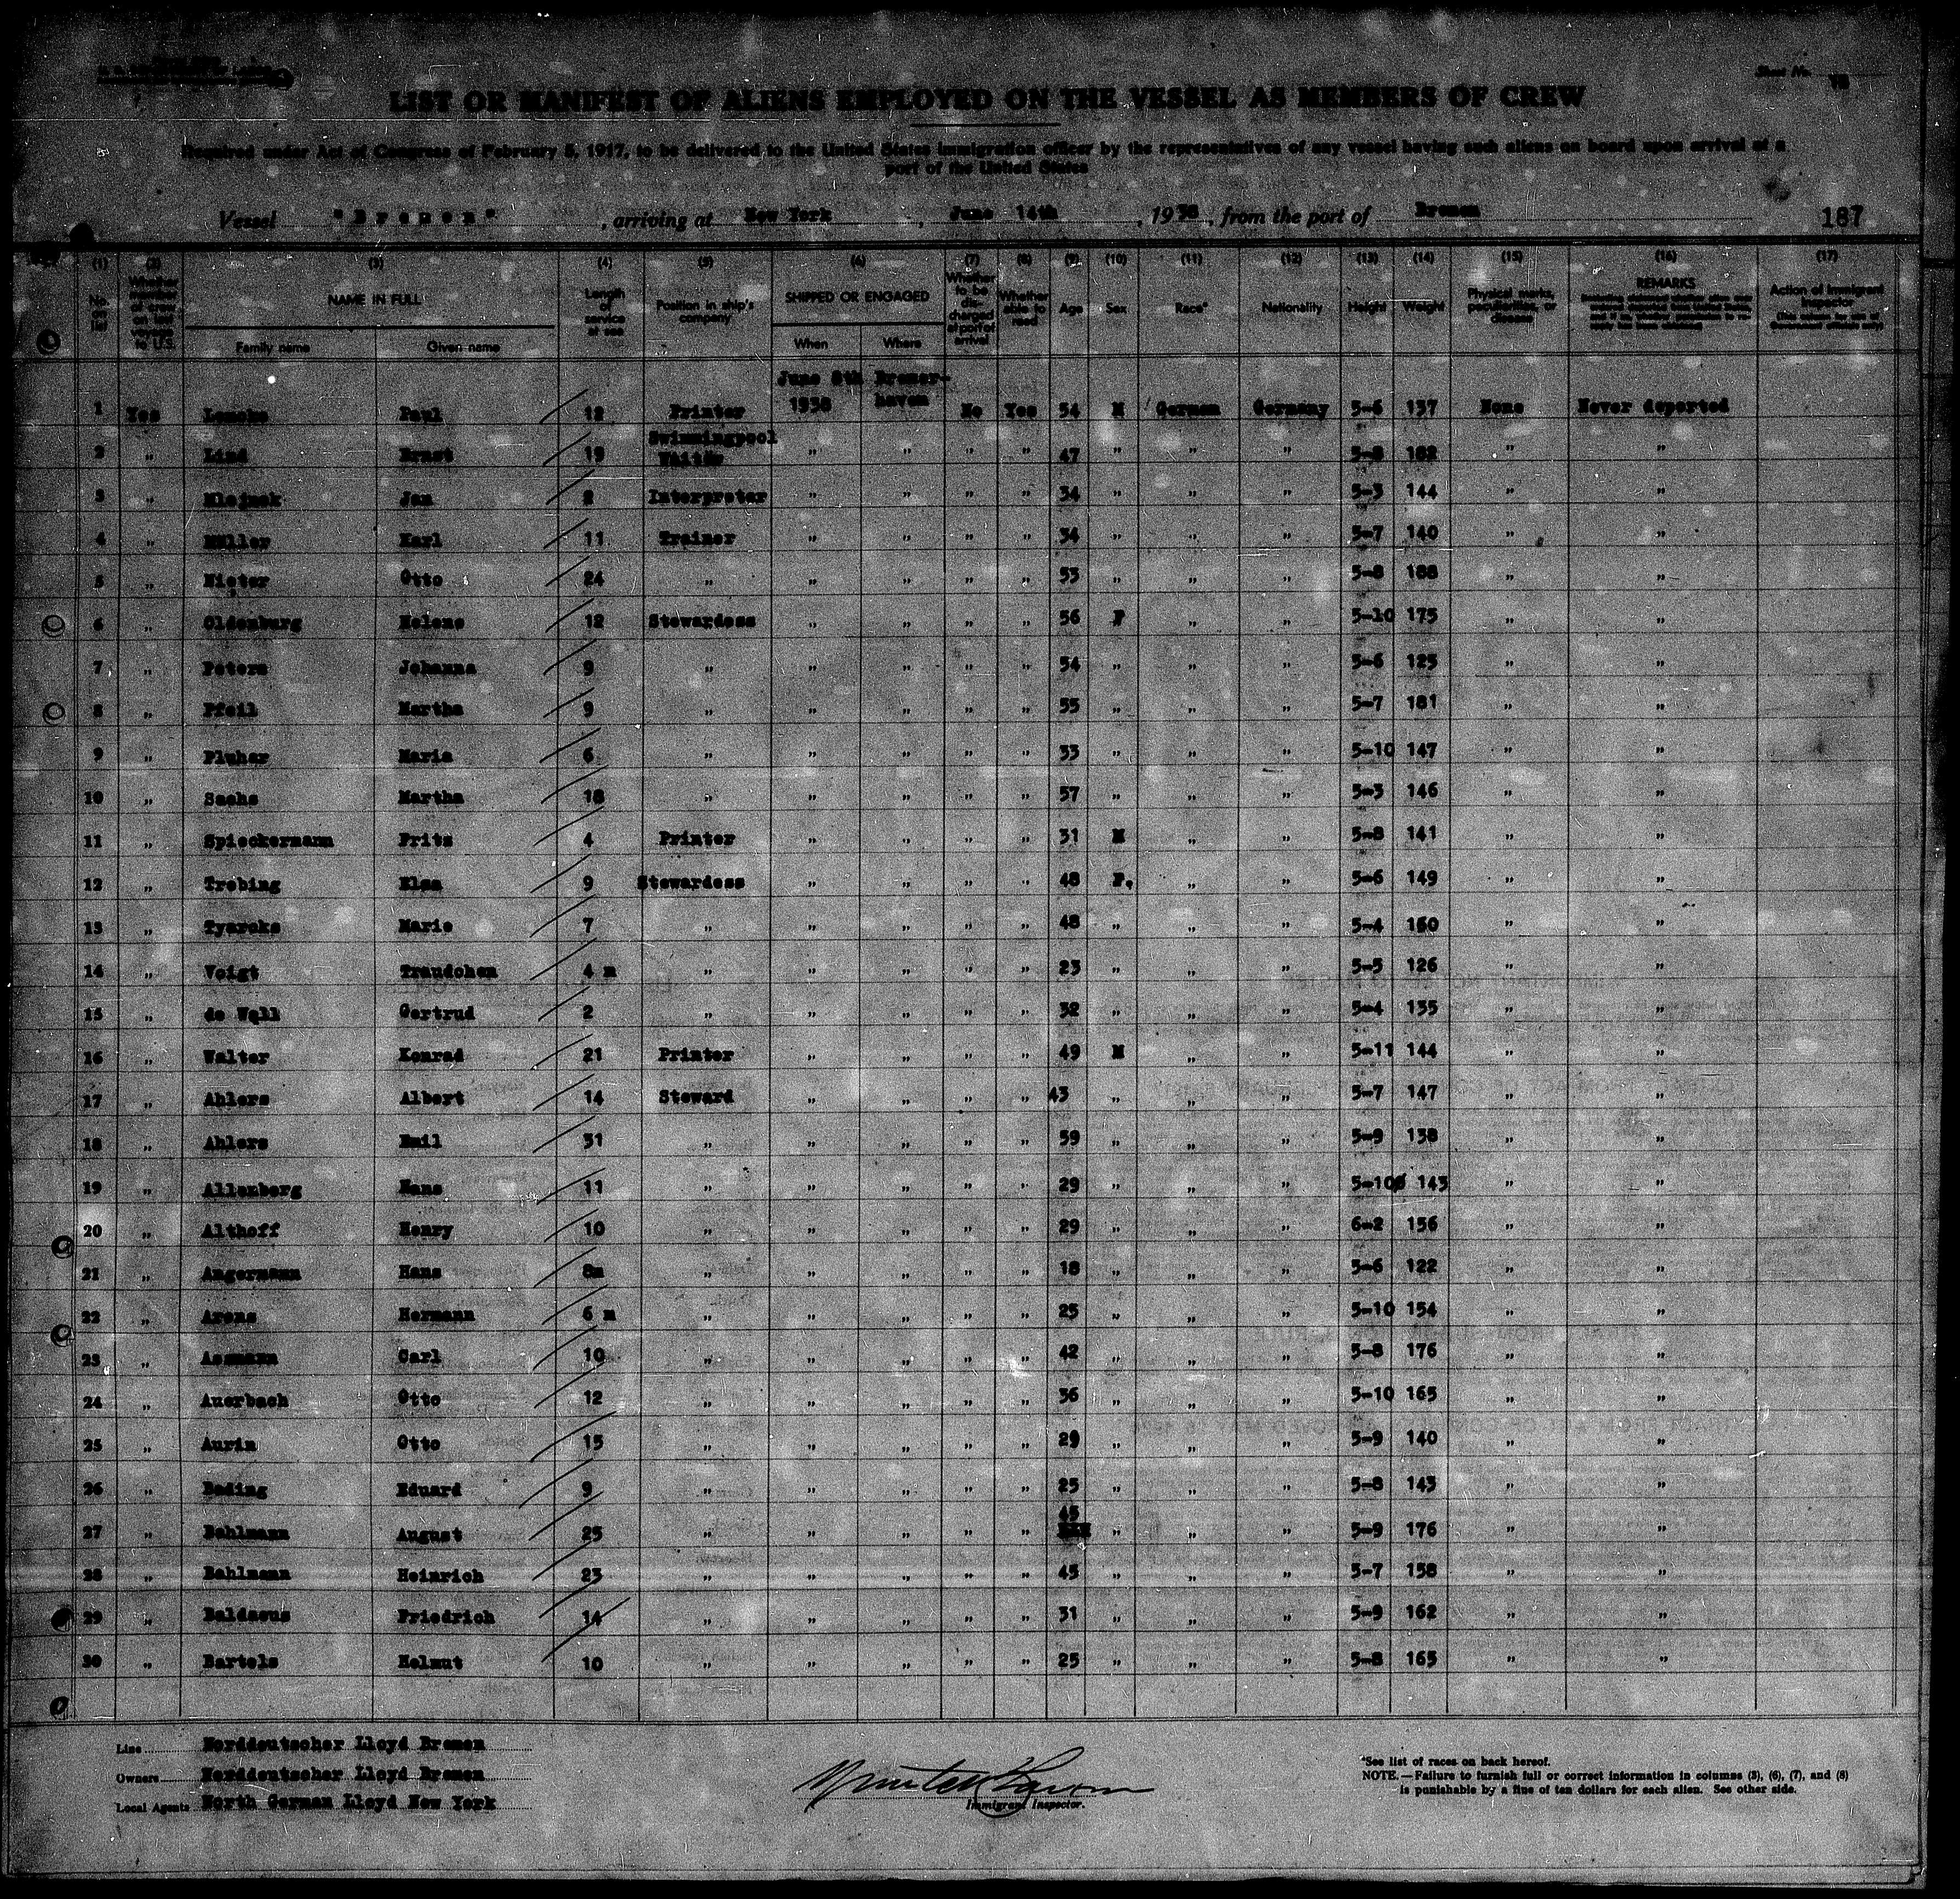 Sheet No.
LIST OR MANIFEST OF ALIENS EMPLOYED ON THE VESSEL AS MEMBERS OF CREW
Required under Act of Congress of February 5, 1917, to be delivered to the United States immigration officer by the representatives of any vessel having such aliens on board upon arrival at a
port of the United States
Vessel "Bremen", arriving at New York, June 14th, 1938, from the port of Bremen 187
(1) (2) (3) (4) (5) (6) (7) (8) (9) (10) (11) (12) (13) (14) (15) (16) (17)
No. on list NAME IN FULL Length service at sea Position in ship's company SHIPPED OR ENGAGED Whether to be discharged at port of arrival Whether able to read Age Sex Race* Nationality Height Weight Physical marks, peculiarities, or disease REMARKS Action of Immigrant Inspector
Family name Given name When Where
June 8th Bremer-
1 Yes Lemcke Paul 12 Printer 1938 haven No Yes 54 M German Germany 5-6 137 None Never deported
Swimmingpool
2 " Lind Ernst 19 " " " " 47 " " " 5-8 182 " "
3 " Jan 2 Interpreter " " " " 34 " " " 5-3 144 " "
4 " Müller Karl 11 Trainer " " " " 34 " " " 5-7 140 " "
5 " Nieter Otto 24 " " " " " 53 " " " 5-8 188 " "
6 " Oldenburg Helene 12 Stewardess " " " " 56 F " " 5-10 175 " "
7 " Peters Johanna 9 " " " " " 54 " " " 5-6 125 " "
8 " Pfeil Martha 9 " " " " " 55 " " " 5-7 181 " "
9 " Pluhar Maria 6 " " " " " 33 " " " 5-10 147 " "
10 " Sachs Martha 18 " " " " " 57 " " " 5-3 146 " "
11 " Spieckermann Fritz 4 Printer " " " " 31 M " " 5-8 141 " "
12 " Trebing Elsa 9 Stewardess " " " " 48 F. " " 5-6 149 " "
13 " Tyaroks Marie 7 " " " " " 48 " " " 5-4 160 " "
14 " Voigt Traudchen 4 m " " " " " 23 " " " 5-5 126 " "
15 " de Wall Gertrud 2 " " " " " 32 " " " 5-4 135 " "
16 " Walter Konrad 21 Printer " " " " 49 M " " 5-11 144 " "
17 " Ahlers Albert 14 Steward " " " " 43 " " " 5-7 147 " "
18 " Ahlers Emil 31 " " " " " 59 " " " 5-9 138 " "
19 " Allenberg Hans 11 " " " " " 29 " " " 5-10 143 " "
20 " Althoff Henry 10 " " " " " 29 " " " 6-2 156 " "
21 " Angermann Hans 8m " " " " " 18 " " " 5-6 122 " "
22 " Arens Hermann 6 m " " " " " 25 " " " 5-10 154 " "
23 " Assmann Carl 10 " " " " " 42 " " " 5-8 176 " "
24 " Auerbach Otto 12 " " " " " 36 " " " 5-10 165 " "
25 " Aurin Otto 15 " " " " " 29 " " " 5-9 140 " "
26 " Bading Eduard 9 " " " " " 25 " " " 5-8 143 " "
27 " Bahlmann August 25 " " " " " 45 " " " 5-9 176 " "
28 " Bahlmann Heinrich 23 " " " " " 45 " " " 5-7 158 " "
29 " Baldaeus Friedrich 14 " " " " " 31 " " " 5-9 162 " "
30 " Bartels Helmut 10 " " " " " 25 " " " 5-8 165 " "
Line Norddeutscher Lloyd Bremen
Owners Norddeutscher Lloyd Bremen
Local Agents North German Lloyd New York
Immigrant Inspector.
*See list of races on back hereof.
NOTE.—Failure to furnish full or correct information in columns (3), (6), (7), and (8)
is punishable by a fine of ten dollars for each alien. See other side.